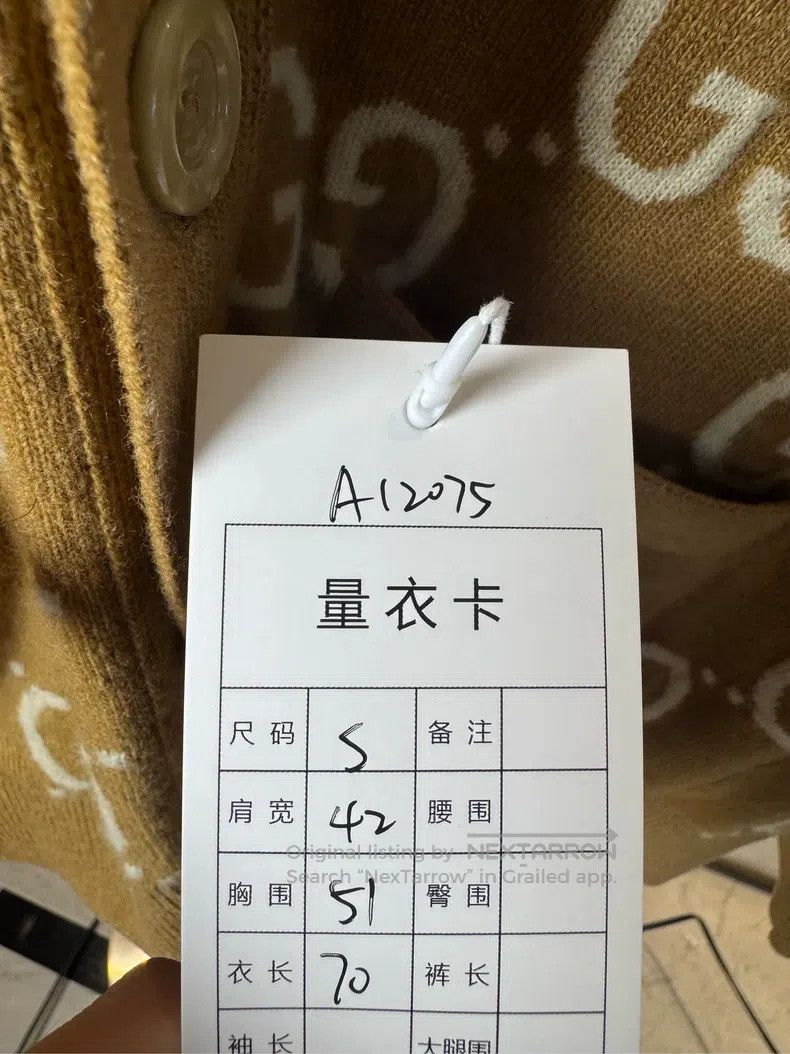 A12075
量衣卡
尺码 S 备注
肩宽 42 腰围
Original listing by NEXTARROW
Search “NexTarrow” in Grailed app.
胸围 51 臀围
衣长 70 裤长
袖长 大腿围